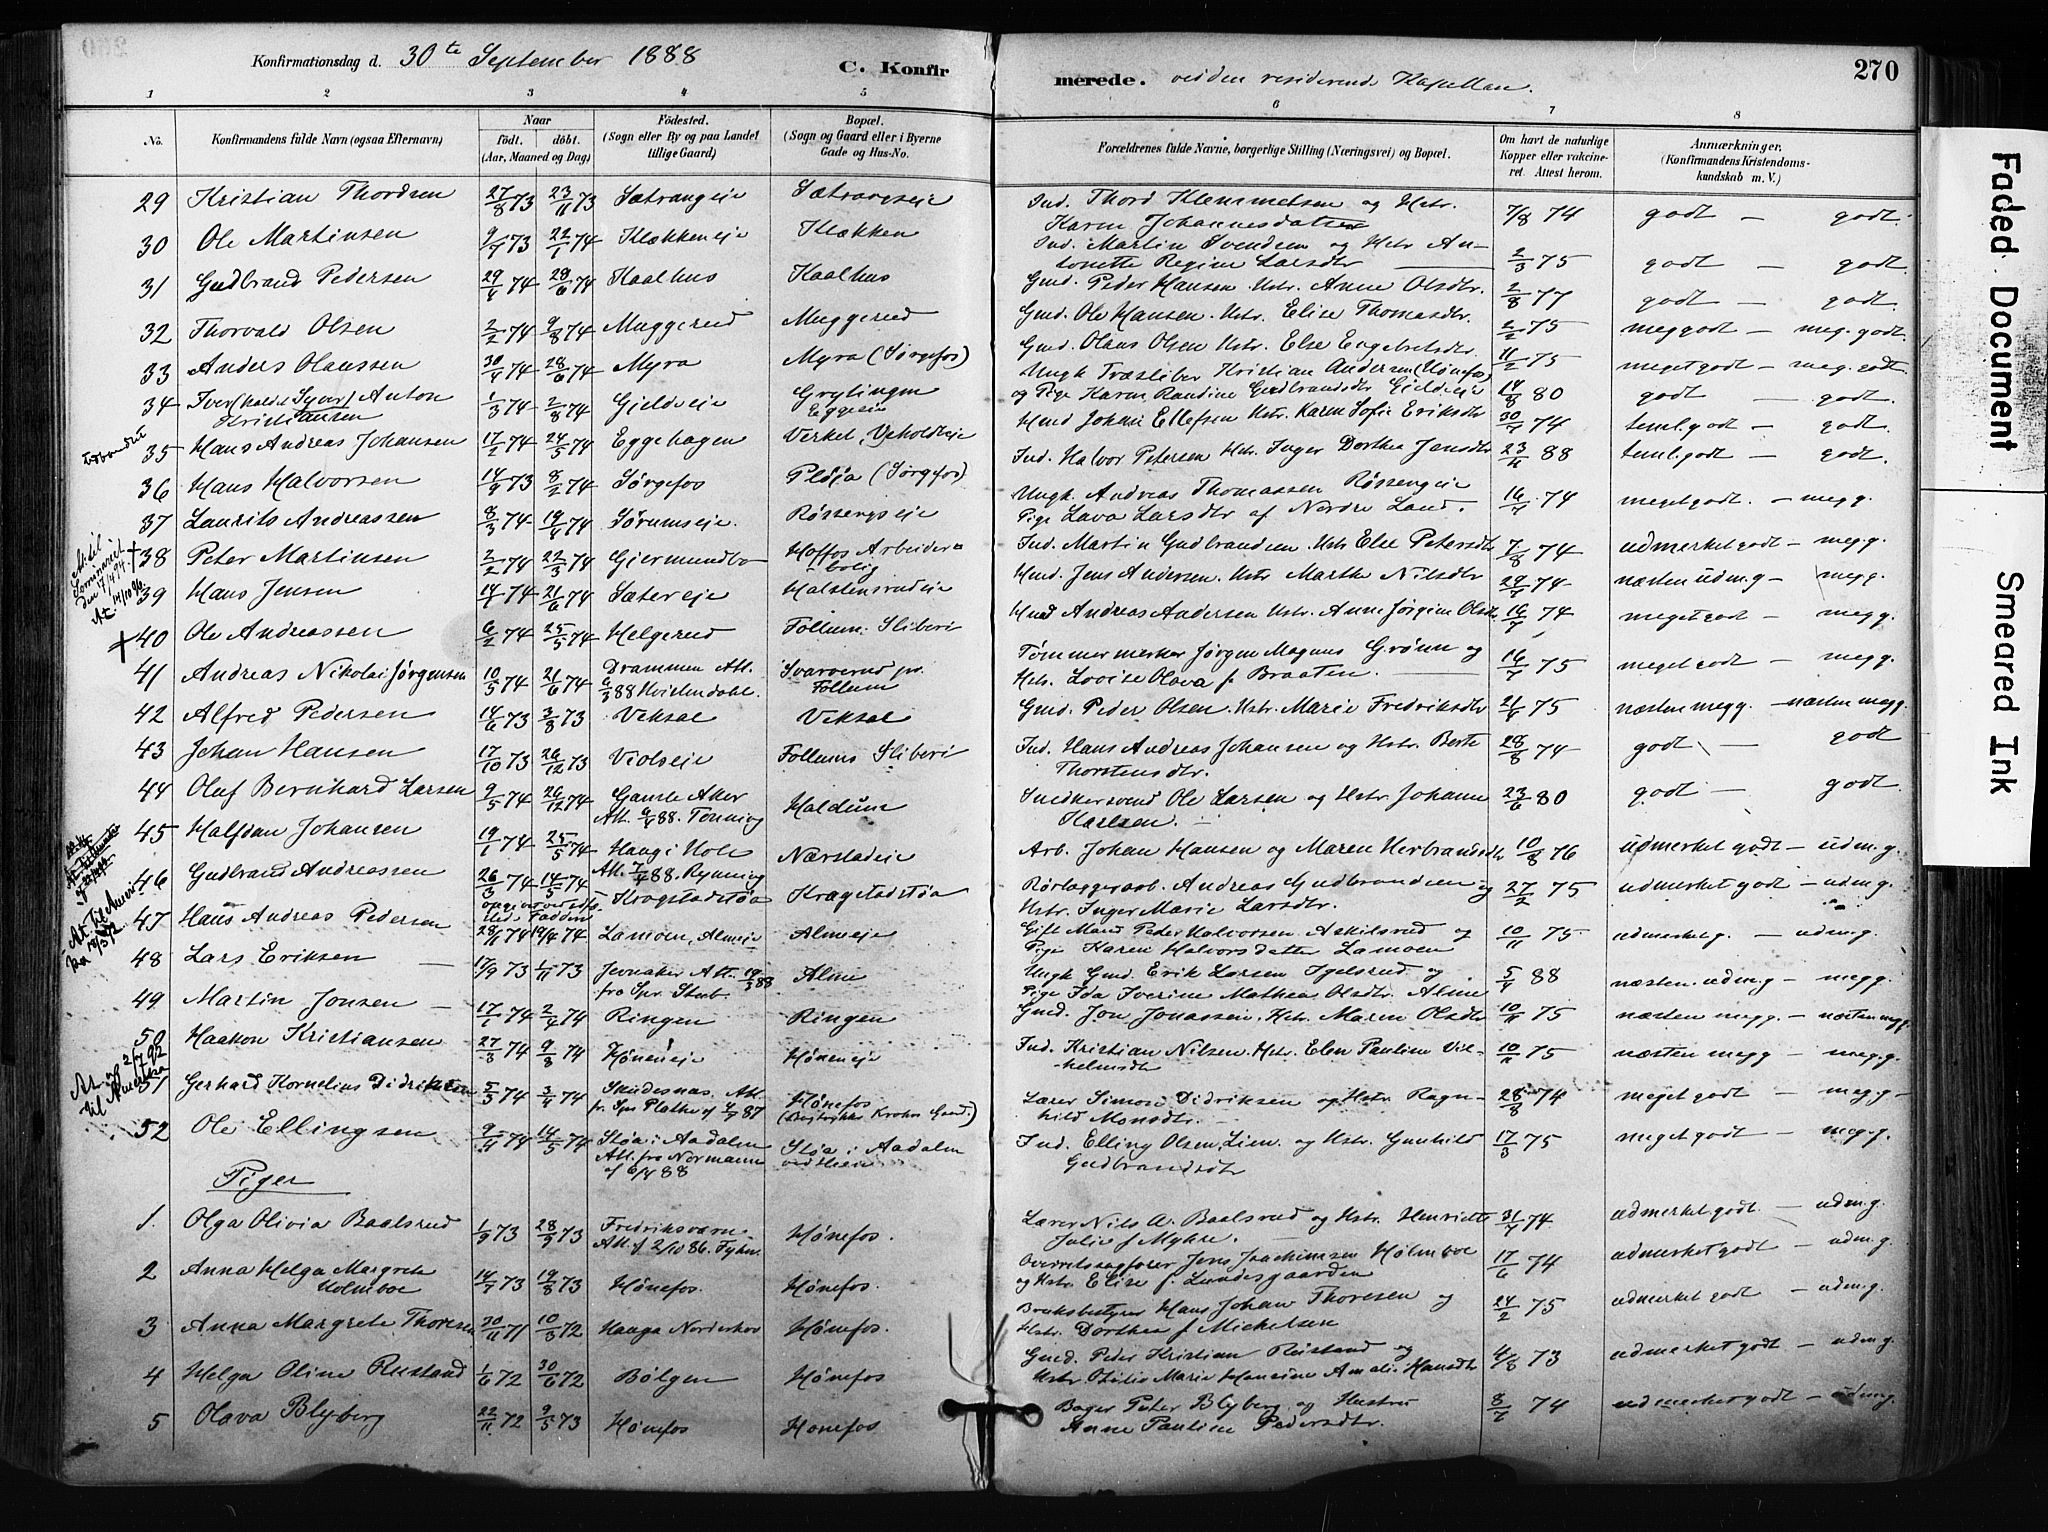 Konfirmationsdag d. 30te September 1888 C. Konfir
merede. ved den residerende Kapellan. 270
1 2 3 4 5 6 7 8
No. Konfirmandens fulde Navn (ogsaa Efternavn) Naar født. døbt. (Aar, Maaned og Dag) Fødested. (Sogn eller By og paa Landet tillige Gaard) Bopæl. (Sogn og Gaard eller i Byerne Gade og Hus-No. Forældrenes fulde Navne, borgerlige Stilling (Næringsvei) og Bopæl. Om havt de naturlige Kopper eller vakcineret. Attest herom. Anmærkninger. (Konfirmandens Kristendomskundskab m. V.)
29 Kristian Thordsen 27/8 73 23/11 73 Sætrangeie Sætrangseie Ind. Thord Klemmetsen og Hstr. Karen Johannesdatter 7/8 74 godt — godt.
30 Ole Martinsen 9/9 73 22/1 74 Klækkeneie Klækken Ind. Martin Svendsen og Hstr. Antonette Regine Larsdtr 2/3 75 godt — godt.
31 Gudbrand Pedersen 29/4 74 28/6 74 Kaalhus Kaalhus Gmd. Peder Hansen Hstr. Anne Olsdtr. 2/8 77 godt — godt.
32 Thorvald Olsen 2/2 74 9/8 74 Muggerud Muggerud Gmd. Ole Hansen. Hstr. Elise Thomasdtr. 2/2 75 meg godt — meg. godt.
33 Anders Olaussen 30/4 74 28/6 74 Myra Myra (Sørgefos) Gmd. Olaus Olsen Hstr. Else Engebretsdtr. 11/2 75 meget godt — meg. godt.
34 Iver (kaldt Syver) Anton Kristiansen 1/3 74 2/8 74 Gjeldseie Grytingen Eggeeie Ungk. Træsliber Kristian Andersen (Hønefos) og Pige Karen Randine Gudbrandsdtr Gjeldseie 14/8 80 godt — godt.
35 Hans Andreas Johansen 17/2 74 24/5 74 Eggehagen Verket, Veholdteie Hmd Johan Ellefsen Hstr. Karen Sofie Eriksdtr 30/7 74 teml. godt — godt.
36 Hans Halvorsen 14/9 73 8/2 74 Sørgefos Pløja (Sørgfos) Ind. Halvor Petersen Hstr. Inger Dorthea Jensdtr 23/4 88 teml. godt — godt.
37 Laurits Andreassen 8/3 74 19/4 74 Sørumseie. Røssengseie Ungk. Andreas Thomassen Røssengeie Pige Lava Larsdtr af Nordre Land. 16/7 74 meget godt. — meg g.
38 Peter Martinsen 2/2 74 22/3 74 Gjermundbo Hoffos Arbeiderbolig Ind. Martin Gudbrandsen. Hstr Else Petersdtr 7/8 74 udmerket godt — meg g.
39 Hans Jensen 14/4 74 21/6 74 Sætereie Halstensrudeie Hmd. Jens Andersen. Hstr Marthe Nilsdtr 29/7 74 næsten udm. g — meg g.
40 Ole Andreassen 6/2 74 25/5 74 Helgerud Follum. Sliberi Hmd Andreas Andersen Hstr. Anne Jørgine Olsdtr 16/7 74 meget godt — meg g.
41 Andreas Nikolai Jørgensen 10/5 74 21/6 74 Drammen Att. 6/3 88 Hvistendahl. Svarverud pr. Follum Tømmermerker Jørgen Magnus Grønn og Hstr. Lovise Olava f. Braaten. 16/7 75 meget godt — meg g.
42 Alfred Pedersen 14/6 73 3/8 73 Veksal Veksal Gmd. Peder Olsen. Hstr. Marie Fredriksdtr 21/6 75 næsten meg g. — næsten meg g.
43 Johan Hansen 17/10 73 26/12 73 Violseie Follums Sliberi Ind. Hans Andreas Johansen og Hstr. Berte Thorstensdtr. 28/8 74 godt — godt
44 Oluf Bernhard Larsen 9/5 74 26/12 74 Gamle Aker Att. 9/4 88. Tønning Haldum Snedkersvend Ole Larsen og Hstr Johanne Karlsen. 23/6 80 godt — godt.
45 Halfdan Johansen 19/1 74 25/5 74 Haug i Hole Att. 7/4 88. Rynning Nærstadeie Arb. Johan Hansen og Maren Herbrandsdtr 10/8 76 udmerket godt — udm. g.
46 Gudbrand Andreassen 26/3 74 14/5 74 Kragstadstøa Kragstadstøa Rørlæggerarb. Andreas Gudbrandsen og Hstr. Inger Marie Larsdtr. 27/2 75 udmerket godt — udm. g.
47 Hans Andreas Pedersen 28/1 74 19/4 74 Lamoen, Almeie Almeie Gift Mand Peter Halvorsen Askilsrud og Pige Karen Halvorsdatter Lamoen 10/11 75 udmerket g. — udm. g.
48 Lars Eriksen — 17/9 73 1/11 73 Jevnaker Att. 19/3 88 fra Spr. Stub. Alme Ungk Gmd. Erik Larsen Igelsrud og Pige Ida Iverine Mathea Olsdtr. Alme 5/4 88 næsten. udm. g — meg g.
49 Martin Jonsen — 17/1 74 2/4 74 Ringen Ringen Gmd. Jon Jonassen. Hstr. Maren Olsdtr 10/11 75 næsten meg g. — næsten meg g.
50 Haakon Kristiansen 27/3 74 9/8 74 Høneneie Høneneie Ind. Kristian Nilsen. Hstr. Elen Pauline Vilhelmsdtr 10/11 75 næsten meg g — meg. g.
51 Gerhard Kornelius Didriksen 5/3 74 3/4 74 Skudesnæs. Att. fr. Spr Hønefos (Bestyrer Krohns Gaard.) Lærer Simon Didriksen og Hstr. Ragnhild Monsdtr. 28/8 74 meget godt — meg. g —
52 Ole Ellingsen 9/4 74 14/5 74 Støa i Aadalen Att. fra Normann af 6/4 88 Støa i Aadalen Ind. Elling Olsen Lien. og Hstr. Gunhild Gudbrandsdtr 17/3 75 meget godt — meg. g.
Piger
1. Olga Olivia Baalsrud 1/9 73 28/9 73 Fredriksværn Att. f 2/10 86. Hønefos. Lærer Nils A. Baalsrud og Hstr. Henriette Julie f Myhre. 31/7 74 udmerket godt. — udm. g.
2 Anna Helga Margrete Holmboe 14/7 73 19/8 73 Hønefos. Hønefos. Overretssagfører Jens Joachimsen Holmboe og Hstr Elise f. Lundesgaarden 17/6 74 udmerket godt — udm. g.
3 Anna Margrete Thoresen 20/11 71 10/3 72 Haug Norderhov Hønefos. Bruksbestyrer Hans Johan Thoresen og Hstr. Dorthea f Mickelsen 24/2 75 udmerket godt — udm. g.
4 Helga Oline Rustand 1/6 72 30/6 72 Bølgen Hønefos Gmd. Peder Kristian Rustand og Hstr. Otilie Marie Hansine Amalie Hansdtr 4/8 73 udmerket godt — udm g.
5 Olava Blyberg 22/11 72 9/5 73 Hønefos Hønefos Bager Peter Blyberg og Hustru Anne Pauline Pedersdtr. 8/7 74 udmerket godt — udm. g.
At. til Seminariet den 17/4 94.
At. 14/10 96.
At. til Amerika 18/3 92
At. af 2/7 92 til Amerika
Faded Document
Smeared Ink